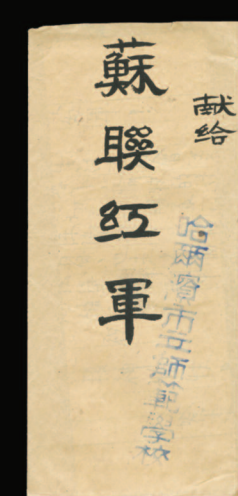 献给
蘇聯红軍
哈爾濱市立師範學校